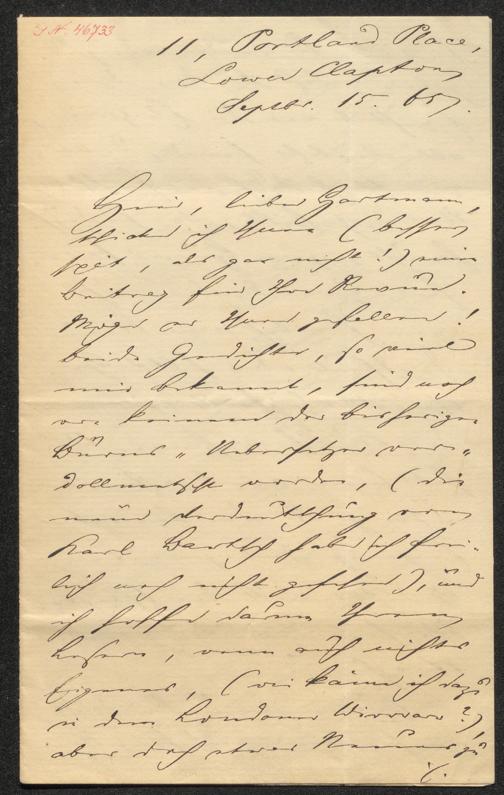 J.N. 46733
11, Portland Place,
Lower Clapton,
Septbr. 15. 65.
Hier, lieber Hartmann,
schicke ich Ihnen (besser
spät, als gar nicht!) meinen
Beitrag für Ihre Revue.
Möge er Ihnen gefallen!
Beide Gedichte, so viel
mir bekannt, sind noch
von keinem der bisherigen
Burns-Uebersetzer ver-
dollmetscht worden, (die
neue Verdeutschung von
Karl Bartsch habe ich frei-
lich noch nicht gesehen), und
ich hoffe darum Ihren
Lesern, wenn auch nichts
Eigenes, (wie käme ich dazu
in dem Londoner Wirrwarr?),
aber doch etwas Neues zu